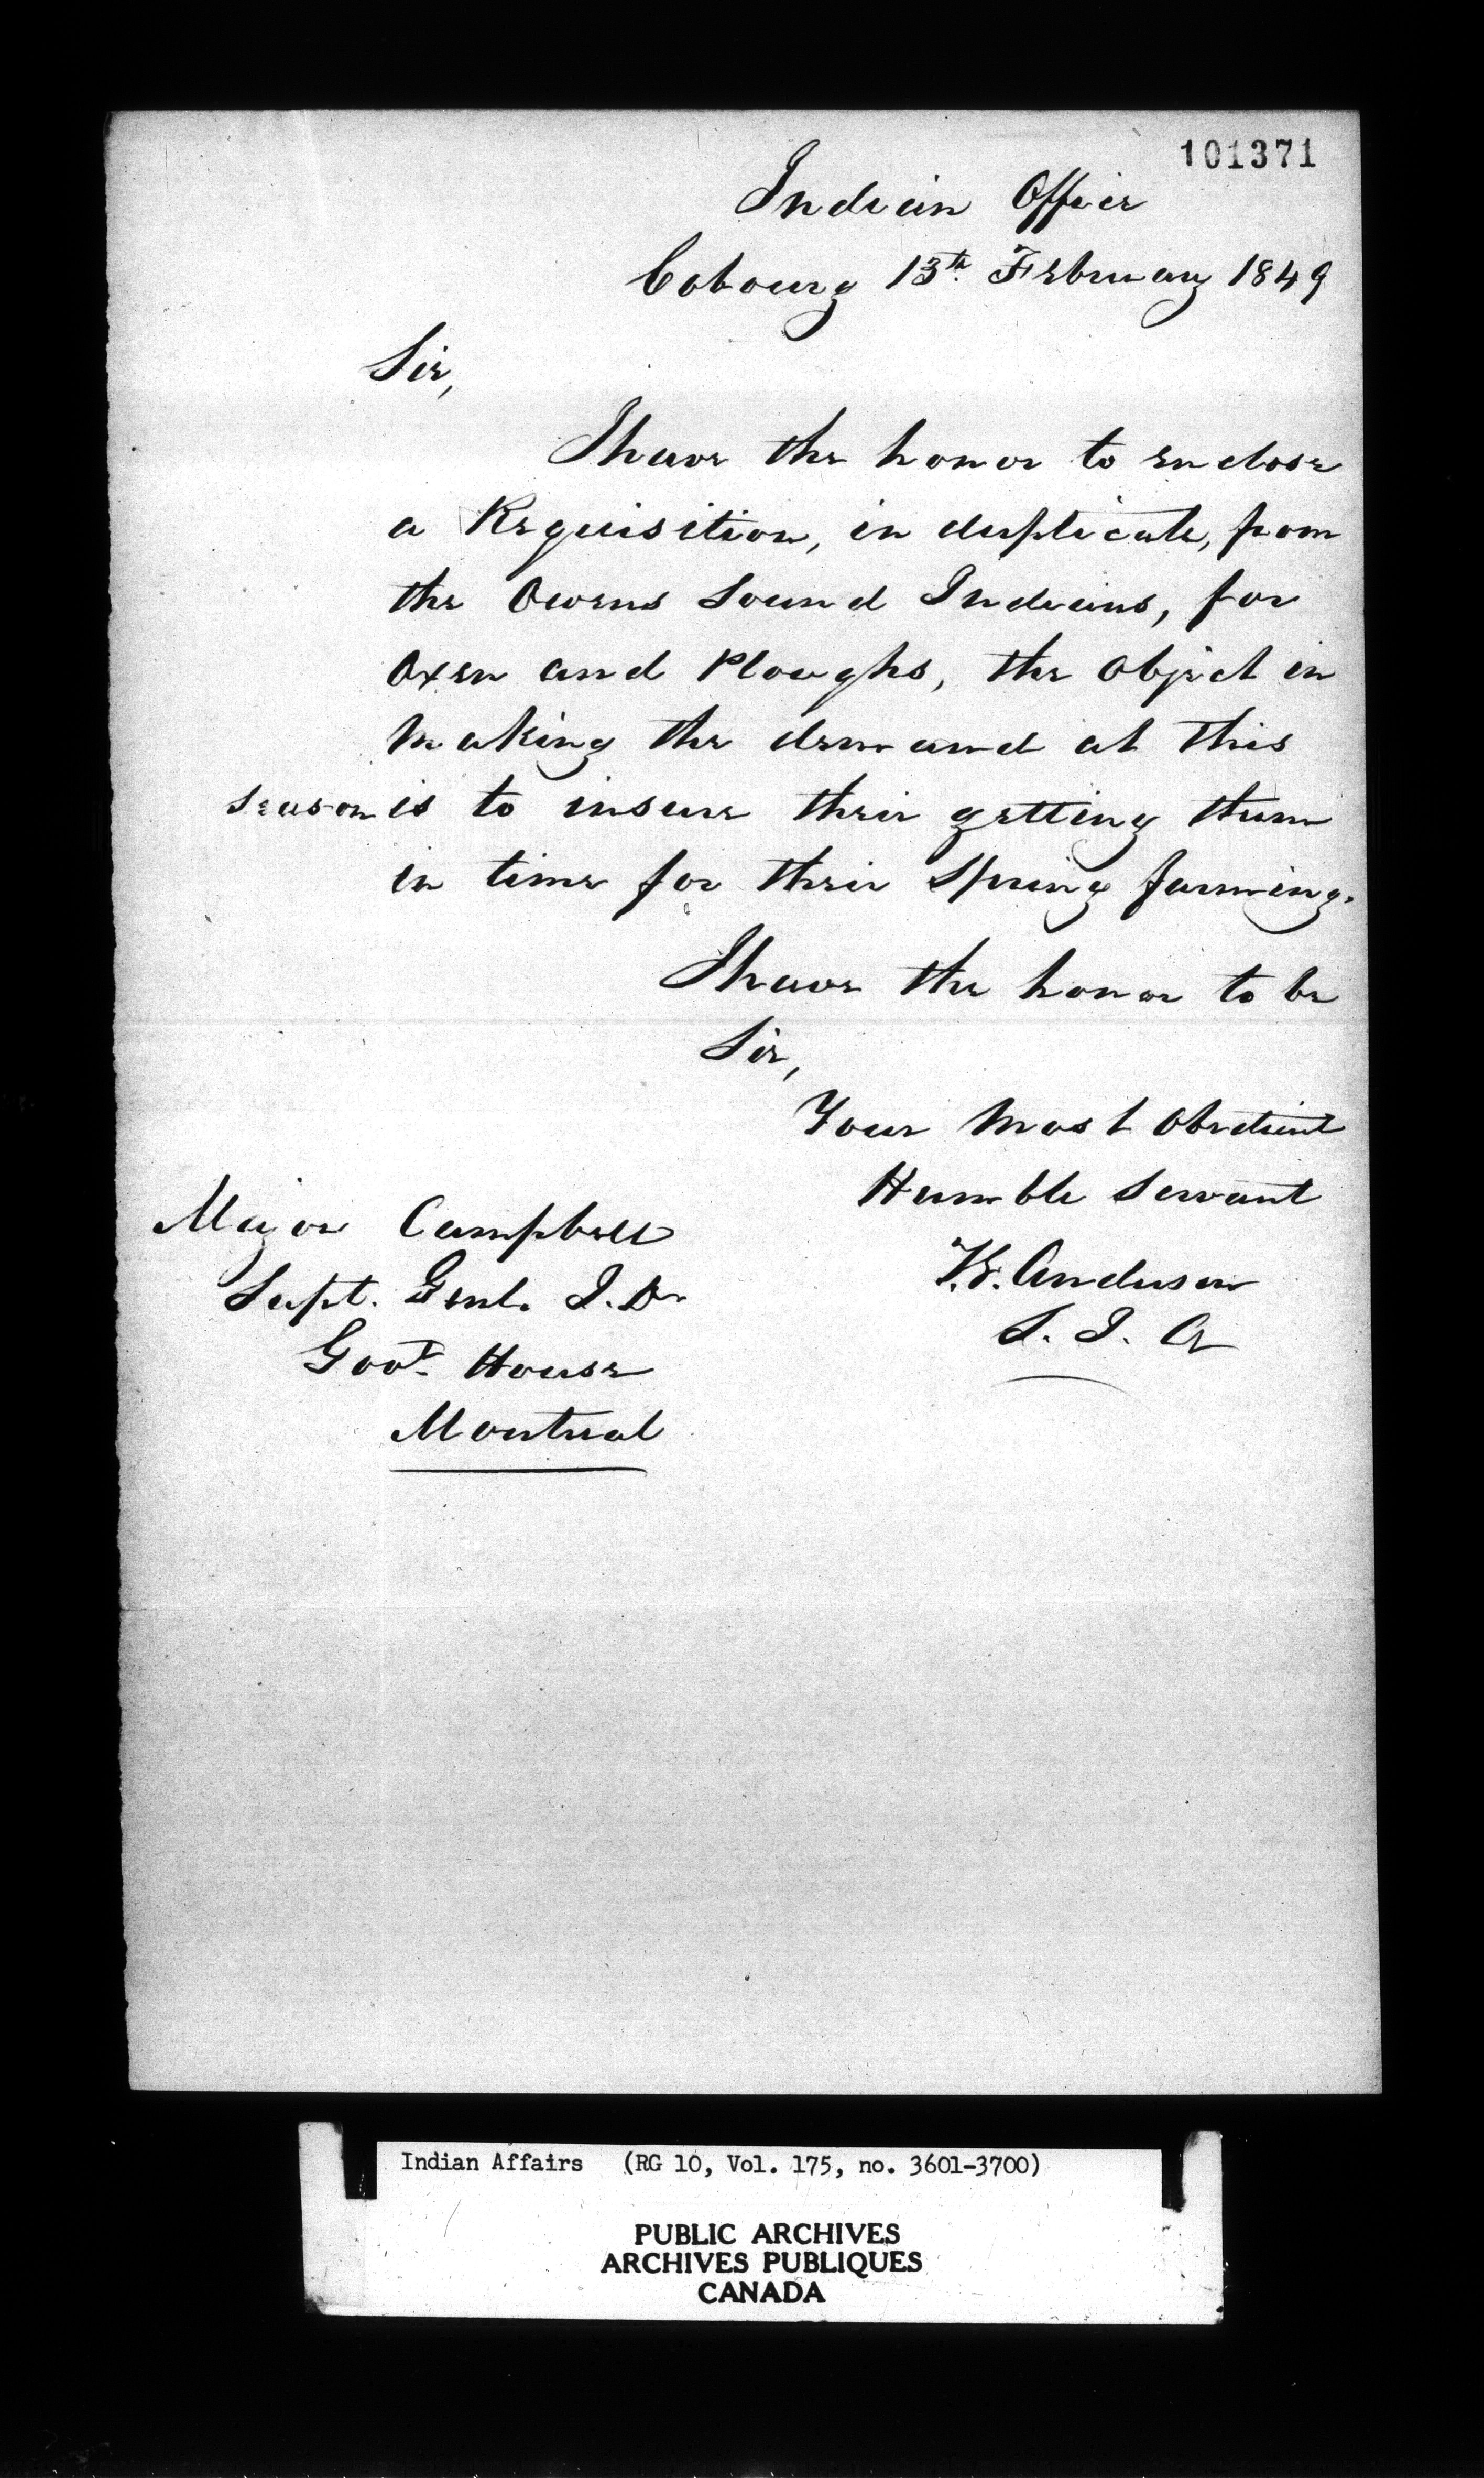 101371
Indian Office
Cobourg 13th. February 1849
Sir,
I have the honor to enclose
a Requisition, in duplicate, from
the Owens Sound Indians, for
Oxen and Ploughs, the object in
making the demand at this
season is to insure their getting them
in time for their Spring farming.
I have the honor to be
Sir,
Your Most Obedient
Humble Servant
T.G. Anderson
S. I. A
Major Campbell
Supt. Genl. I. D.
Govt. House
Montreal
Indian Affairs (RG 10, Vol. 175, no. 3601-3700)
PUBLIC ARCHIVES
ARCHIVES PUBLIQUES
CANADA